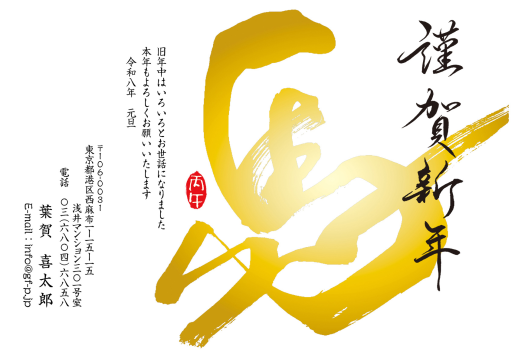 謹賀新年
馬
旧年中はいろいろとお世話になりました
本年もよろしくお願いいたします
令和八年 元旦
丙午
〒106-0031
東京都港区西麻布一-一五-一五
浅井マンション三〇一号室
電話 〇三(六八〇四)六八五八
葉賀 喜太郎
E-mail:info@gf-p.jp